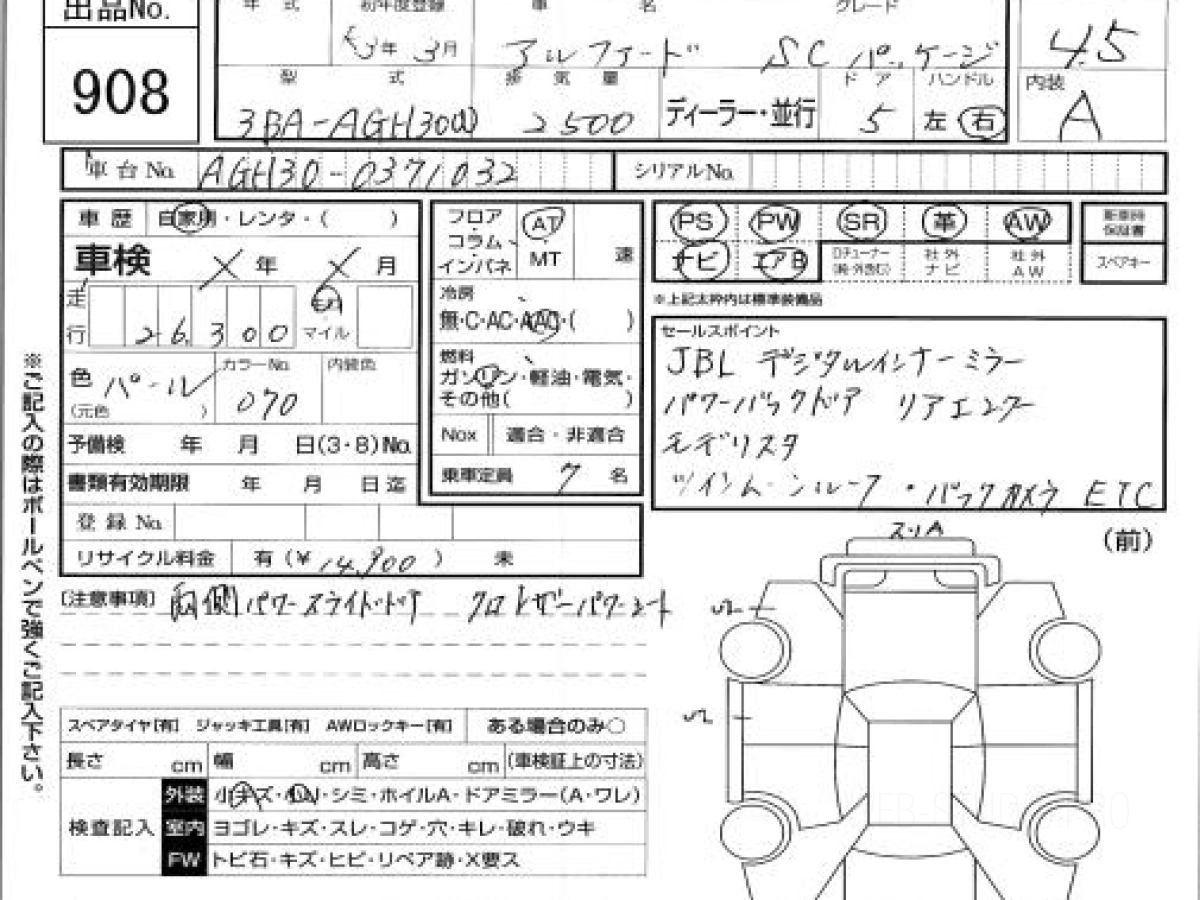 出品No.
908
年式 初年度登録 車名 グレード
R3年 3月 アルファード SC パッケージ
4.5
型式 排気量 ドア ハンドル 内装
3BA-AGH30(W) 2500 ディーラー・並行 5 左 右 A
車台No. AGH30-0371032 シリアルNo.
車歴 自家用・レンタ・( )
車検 年 月
走行 26,300 km マイル
色 パール (元色 ) カラーNo. 070 内装色
予備検 年 月 日(3・8)No.
書類有効期限 年 月 日迄
登録No.
リサイクル料金 有(¥14,900) 未
フロア コラム インパネ AT MT 速
冷房
無・C・AC・AAC・( )
燃料
ガソリン・軽油・電気・
その他( )
Nox 適合・非適合
乗車定員 7 名
PS PW SR 革 AW 新車時保証書
ナビ エアB ロチューナー 社外ナビ 社外AW スペアキー
※上記太枠内は標準装備品
セールスポイント
JBL デジタルインナーミラー
パワーバックドア リアエンター
モデリスタ
ツインムーンルーフ・バックカメラ ETC
[注意事項] 両側パワースライドドア クロレザーパワーシート
スリA
(前)
スペアタイヤ[有] ジャッキ工具[有] AWロックキー[有] ある場合のみ○
長さ cm 幅 cm 高さ cm (車検証上の寸法)
検査記入
外装 小キズ・小凹・シミ・ホイルA・ドアミラー(A・ワレ)
室内 ヨゴレ・キズ・スレ・コゲ・穴・キレ・破れ・ウキ
FW トビ石・キズ・ヒビ・リペア跡・X要ス
※ご記入の際はボールペンで強くご記入下さい。